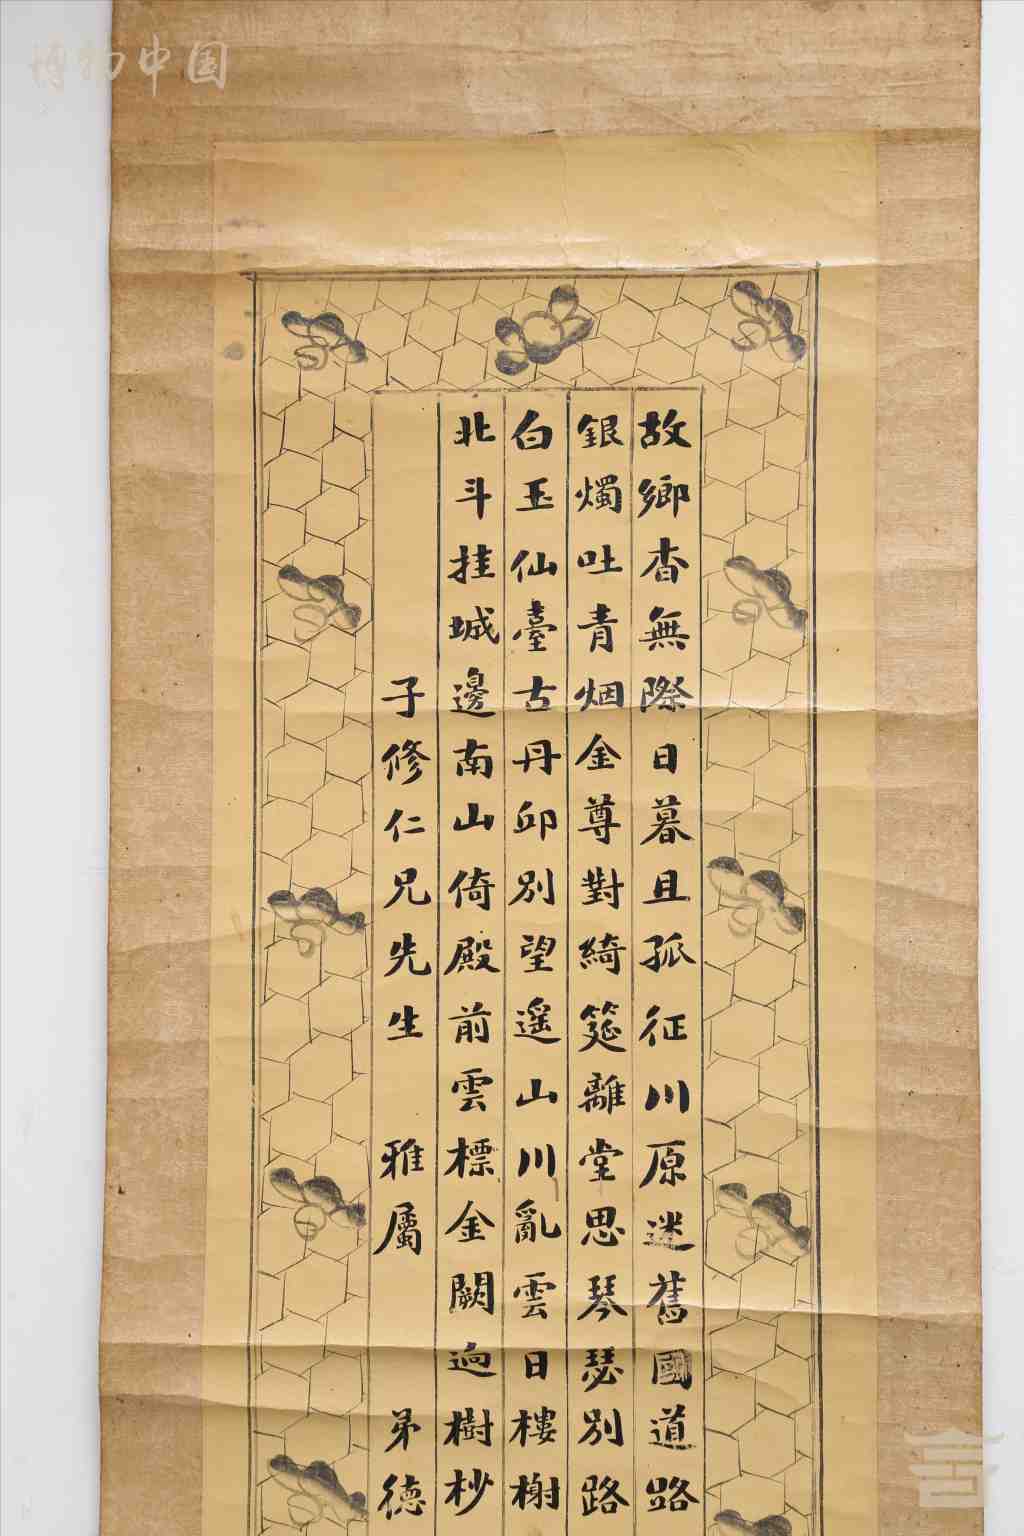 博物中国
故鄉杳無際日暮且孤征川原迷舊國道路
銀燭吐青烟金尊對綺筵離堂思琴瑟別路
白玉仙臺古丹邱別望遥山川亂雲日樓榭
北斗挂城邊南山倚殿前雲標金闕迥樹杪
子修仁兄先生 雅屬 弟德